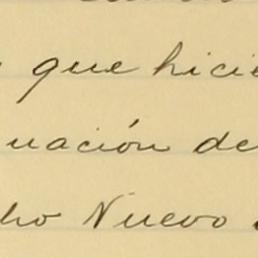 que hicie
uación de
ho Nuevo